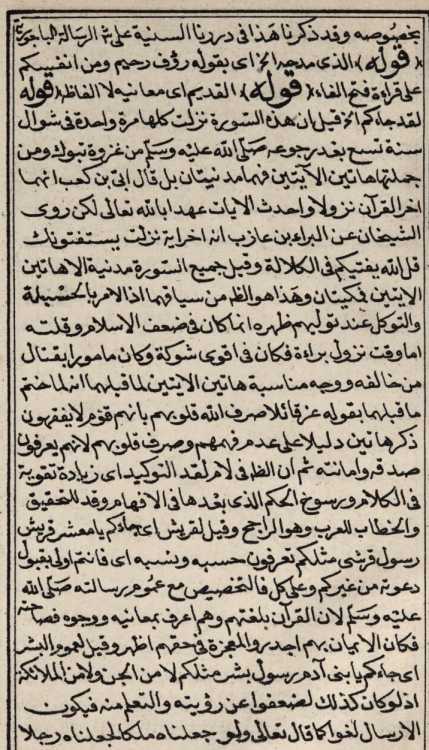 بخصوصه وقد ذكرنا هذا في دررنا السنية على شرح الرسالة الباجورية
(قوله) الذي مدحه الخ اي بقوله رؤف رحيم ومن انفسكم
على قراءة فتح الفاء (قوله) القديم اي معانيه لا الفاظه (قوله)
لقد جاءكم الخ قيل ان هذه السورة نزلت كلها مرة واحدة في شوال
سنة تسع بعد رجوعه صلى الله عليه وسلم من غزوة تبوك ومن
جملتها هاتين الآيتين فهما مدنيتان بل قال ابي بن كعب انهما
اخر القرآن نزولا واحدث الايات عهدا بالله تعالى لكن روى
الشيخان عن البراء بن عازب انه اخر اية نزلت يستفتونك
قل الله يفتيكم في الكلالة وقيل جميع السورة مدنية الا هاتين
الايتين فمكيتان وهذا هو الظم من سياقهما اذ الامر بالحسبلة
والتوكل عند توليهم ظهره انما كان في ضعف الاسلام وقلته
اما وقت نزول براءة فكان في اقوى شوكة وكان مامورا بقتال
من خالفه ووجه مناسبة هاتين الايتين لما قبلهما انه لما ختم
ما قبلهما بقوله عز قائلا صرف الله قلوبهم بانهم قوم لا يفقهون
ذكر هاتين دليلا على عدم فهمهم وصرف قلوبهم لانهم يعرفون
صدقه وامانته ثم ان الظم في لام لقد التوكيد اي زيادة تقوية
في الكلام ورسوخ الحكم الذي بعدها في الافهام وقد للتحقيق
والخطاب للعرب وهو الراجح وقيل لقريش اي جاءكم يا معشر قريش
رسول قرشي مثلكم تعرفون حسبه ونسبه اي فانتم اولى بقبول
دعوته من غيركم وعلى كل فالتخصيص مع عموم رسالته صلى الله
عليه وسلم لان القرآن بلغتهم وهم اعرف بمعانيه ووجوه فصاحته
فكان الايمان بهم اجدر والمعجزة في حقهم اظهر وقيل لعموم البشر
اي جاءكم يا بني آدم رسول بشر مثلكم لا من الجن ولا من الملائكة
اذ لو كان كذلك لضعفوا عن رؤيته والتعلم منه فيكون
الارسال لغوا كما قال تعالى ولو جعلناه ملكا لجعلناه رجلا